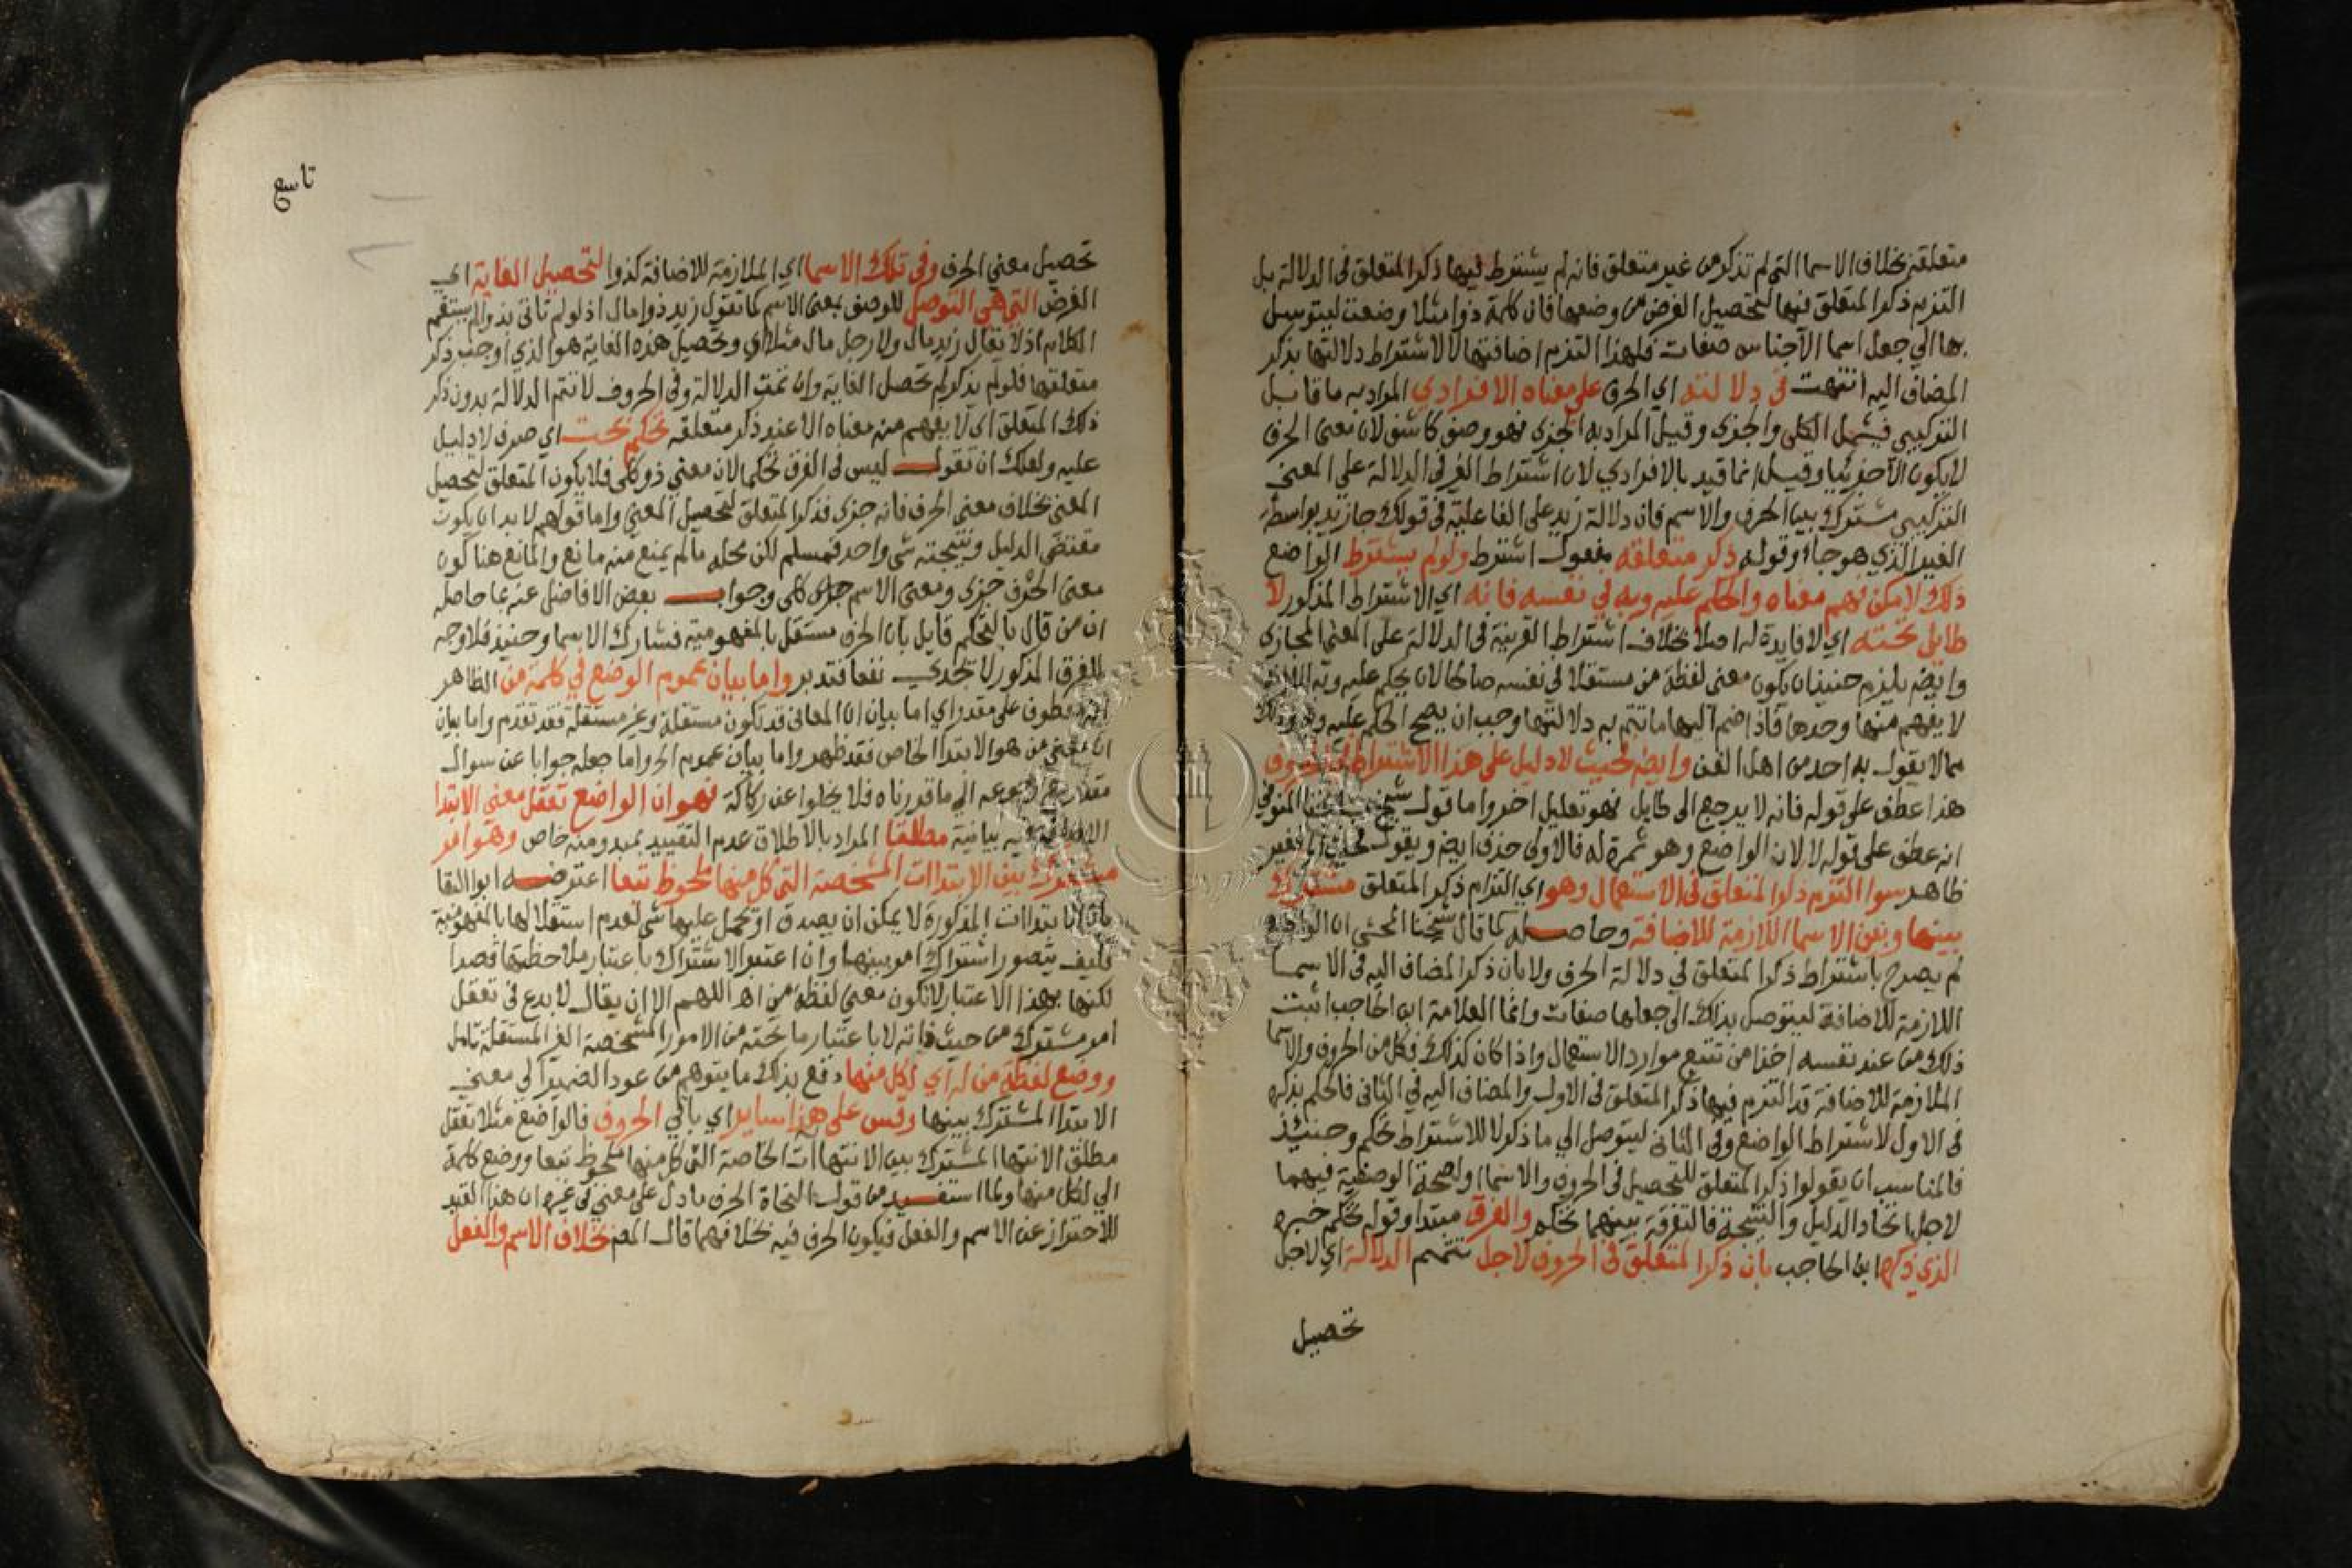 متعلقه بخلاف الاسما التي لم تذكر من غير متعلق فانه لم يشترط فيها ذكر المتعلق في الدلالة بل
التزم ذكر المتعلق فيها لتحصيل الغرض من وضعها فان كلمة ذو مثلا وضعت ليتوسل
بها الي جعل اسما الاجناس صفات فلهذا التزم اضافتها لا لاشتراط دلالتها بذكر
المضاف اليه انتهت في دلالته اي الحرف علي معناه الافرادي المراد به ما قابل
التركيبي فيشمل الكلي والجزي وقيل المراد به الجزي فهو وصف كاشف لان معني الحرف
لا يكون الا جزئيا وقيل انما قيد بالافرادي لان اشتراط الغير في الدلالة علي المعني
التركيبي مشترك بين الحرف والاسم فان دلالة زيد علي الفاعلية في قولك جا زيد بواسطة
الغير الذي هو جاء وقوله ذكر متعلقه مفعول اشترط ولو لم يشترط الواضع
ذلك لامكن فهم معناه والحكم عليه وبه في نفسه فانه اي الاشتراط المذكور لا
طايل تحته اي لا فايدة له اصلا بخلاف اشتراط القرينة في الدلالة علي المعني المجازي
وايضه يلزم حينيذ ان يكون معني لفظة من مستقلا في نفسه صالحا لان يحكم عليه وبه
لا يفهم منها وحدها فاذا ضم اليها ما تتم به دلالتها وجب ان يصح الحكم عليه وبه وذلك
مما لا يقول به احد من اهل الفن وايضه بحيث لا دليل علي هذا الاشتراط في الحروف
هذا عطف علي قوله فانه لا يرجع الي طايل فهو تعليل اخر واما قول
انه عطف علي قوله لا لان الواضع وهو ثمرة له فالاولي حذف ايضه ويقول
ظاهر سوا التزم ذكر المتعلق في الاستعمال وهو اي التزام ذكر المتعلق مشترك
بينها وبين الاسما اللازمة للاضافة وحاصله كما قال شيخنا المحشي ان الواضع
لم يصرح باشتراط ذكر المتعلق في دلالة الحرف ولا بان ذكر المضاف اليه في الاسما
اللازمة للاضافة ليتوصل بذلك الي جعلها صفات وانما العلامة ابن الحاجب اثبت
ذلك من عند نفسه اخذا من تتبع موارد الاستعمال واذا كان كذلك فكل من الحروف والاسما
الملازمة للاضافة قد التزم فيها ذكر المتعلق في الاول والمضاف اليه في الثاني فالحكم بذكره
في الاول لاشتراط الواضع وفي الثاني ليتوصل الي ما ذكر لا للاشتراط تحكم وحينيذ
فالمناسب ان يقولوا ذكر المتعلق للتحصيل في الحروف والاسما او لصحة الوصفية فيهما
لاجل اتحاد الدليل والنتيجة فالتفرقة بينهما تحكم والفرق مبتدا وقوله تحكم خبره
الذي ذكره ابن الحاجب بان ذكر المتعلق في الحروف لاجل تتميم الدلالة اي لاجل
تحصيل
تاسع
تحصيل معني الحرف وفي تلك الاسما اي الملازمة للاضافة كذو لتحصيل الغاية اي
الغرض التي هي التوصل للوصف بمعني الاسم كما تقول زيد ذو مال اذ لو لم تاتي بذو لم يستقم
الكلام اذ لا يقال زيد مال ولا رجل مال مثلا اي وتحصيل هذه الغاية هو الذي اوجب ذكر
متعلقها فلو لم يذكر لم تحصل الغاية وان تمت الدلالة وفي الحروف لا تتم الدلالة بدون ذكر
ذلك المتعلق اي لا يفهم منه معناه الا عند ذكر متعلقه تحكم بحت اي صرف لا دليل
عليه ولعلك ان تقول ليس في الفرق تحكما لان معني ذو كلي فلا يكون المتعلق لتحصيل
المعني بخلاف معني الحرف فانه جزي فذكر المتعلق لتحصيل المعني واما قولهم لا بد ان يكون
مقتضي الدليل ونتيجته شي واحد فمسلم لكن محله ما لم يمنع منه مانع والمانع هنا كون
معني الحرف جزي ومعني الاسم كلي وجواب بعض الافاضل عنه بما حاصله
ان من قال بالتحكم قايل بان الحرف مستقل بالمفهومية فشارك الاسما وحينيذ فلا وجه
للفرق المذكور لا تجدي نفعا فتدبر واما بيان عموم الوضع في كلمة من الظاهر
انه معطوف علي مقدر اي اما بيان ان المعاني قد تكون مستقلة وغير مستقلة فقد تقدم واما بيان
ان معني من هو الابتدا الخاص فقد ظهر واما بيان عموم الخ واما جعله جوابا عن سوال
مقدر الي ما قدرناه فلا يخلو عن ركاكة فهو ان الواضع تعقل معني الابتدا
الاضافة فيه بيانية مطلقا المراد بالاطلاق عدم التقييد بمبدو منه خاص وهو امر
مشترك بين الابتداات المشخصة التي كل منها ملحوظ تبعا اعترضه ابو البقا
بان الابتداات المذكورة لا يمكن ان يصدق او يحمل عليها شي لعدم استقلالها بالمفهومية
فكيف يتصور اشتراك امر بينها وان اعتبر الاشتراك باعتبار ملاحظتها قصدا
لكنها بهذا الاعتبار لا تكون معني لفظة من اهـ اللهم الا ان يقال لا بدع في تعقل
امر مشترك من حيث ذاته لا باعتبار ما تحته من الامور المشخصة الغير المستقلة تامل
ووضع لفظة من له اي لكل منها دفع بذلك ما يتوهم من عود الضمير الي معني
الابتدا المشترك بينها وقس علي هذا ساير اي باقي الحروف فالواضع مثلا تعقل
مطلق الانتها المشترك بين الانتهاات الخاصة التي كل منها ملحوظ تبعا ووضع كلمة
الي لكل منها ولما استفيد من قول النحاة الحرف ما دل علي معني في غيره ان هذا القيد
للاحتراز عن الاسم والفعل فيكون الحرف فيه بخلافهما قال المصنف بخلاف الاسم والفعل